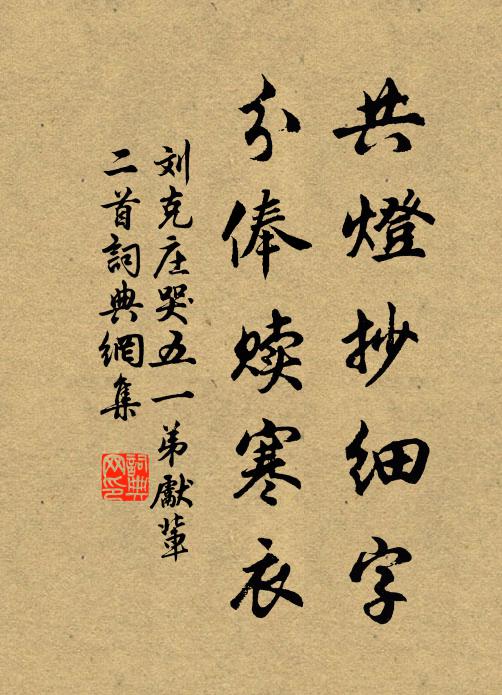 共燈抄細字
分俸赎寒衣
刘克庄哭五一弟獻輩
二首詞典網集
詞典
网印